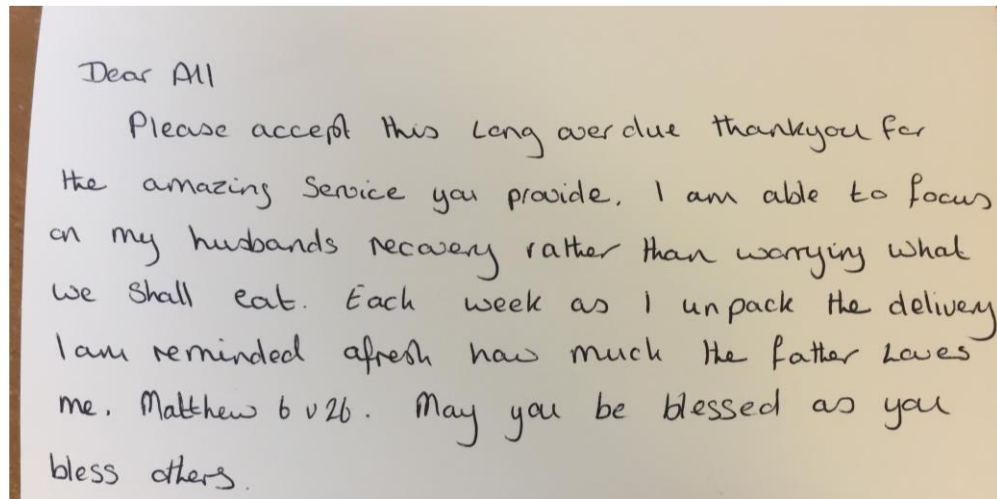 Dear All
Please accept this Long overdue thankyou for
the amazing Service you provide. I am able to focus
on my husbands recovery rather than worrying what
we Shall eat. Each week as I unpack the delivery
I am reminded afresh how much the father Loves
me. Matthew 6 v 26. May you be blessed as you
bless others.